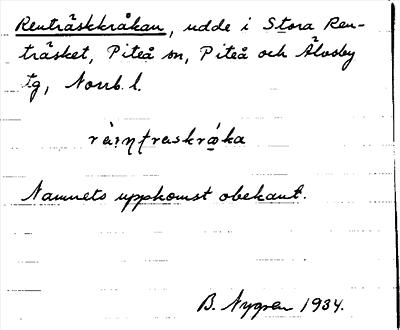 Renträskkråkan, udde i Stora Ren-
träsket, Piteå sn, Piteå och Älvsby
tg, Norrb. l.
Namnets uppkomst obekant.
B. Nygren 1934.